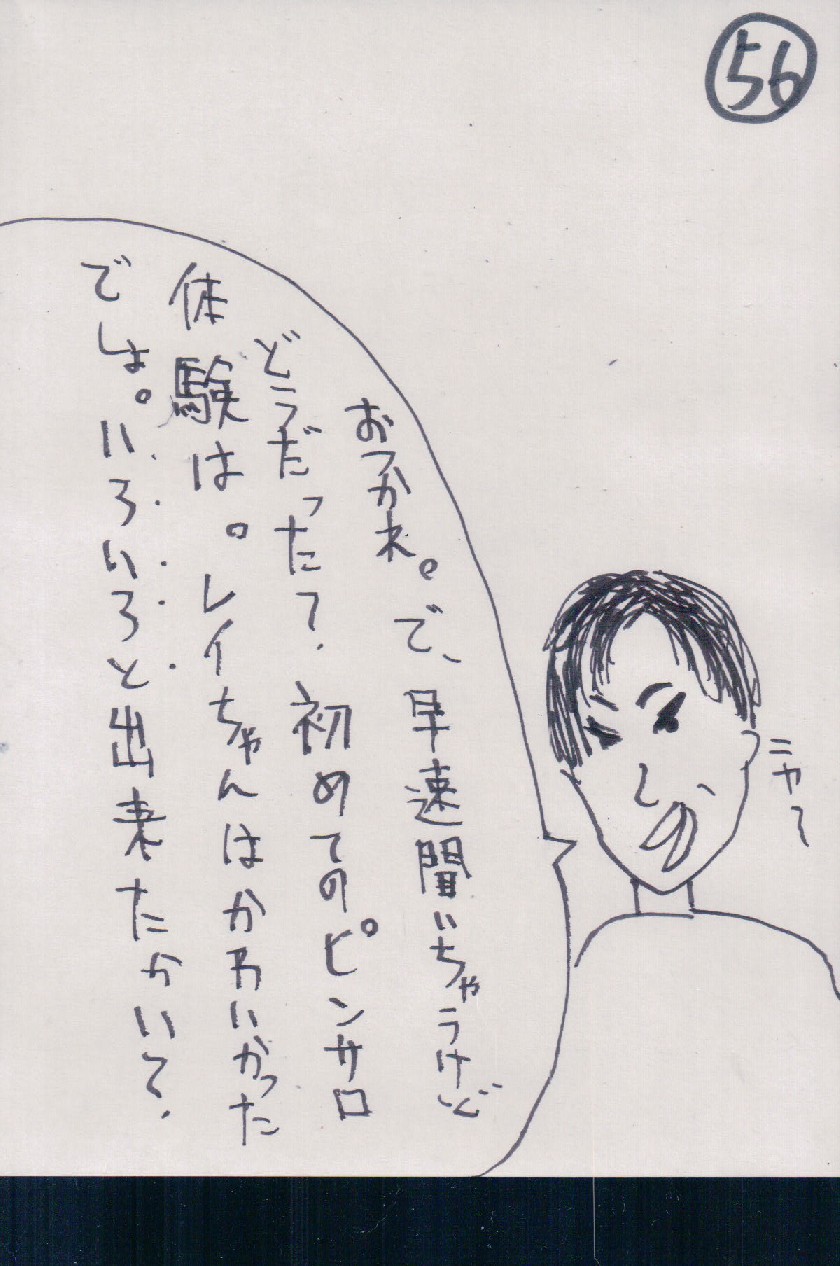 56
おつかれ。で、早速聞いちゃうけど
どうだった？初めてのピンサロ
体験は。レイちゃんはかわいかった
でしょ。いろいろと出来たかい？
ニヤっ